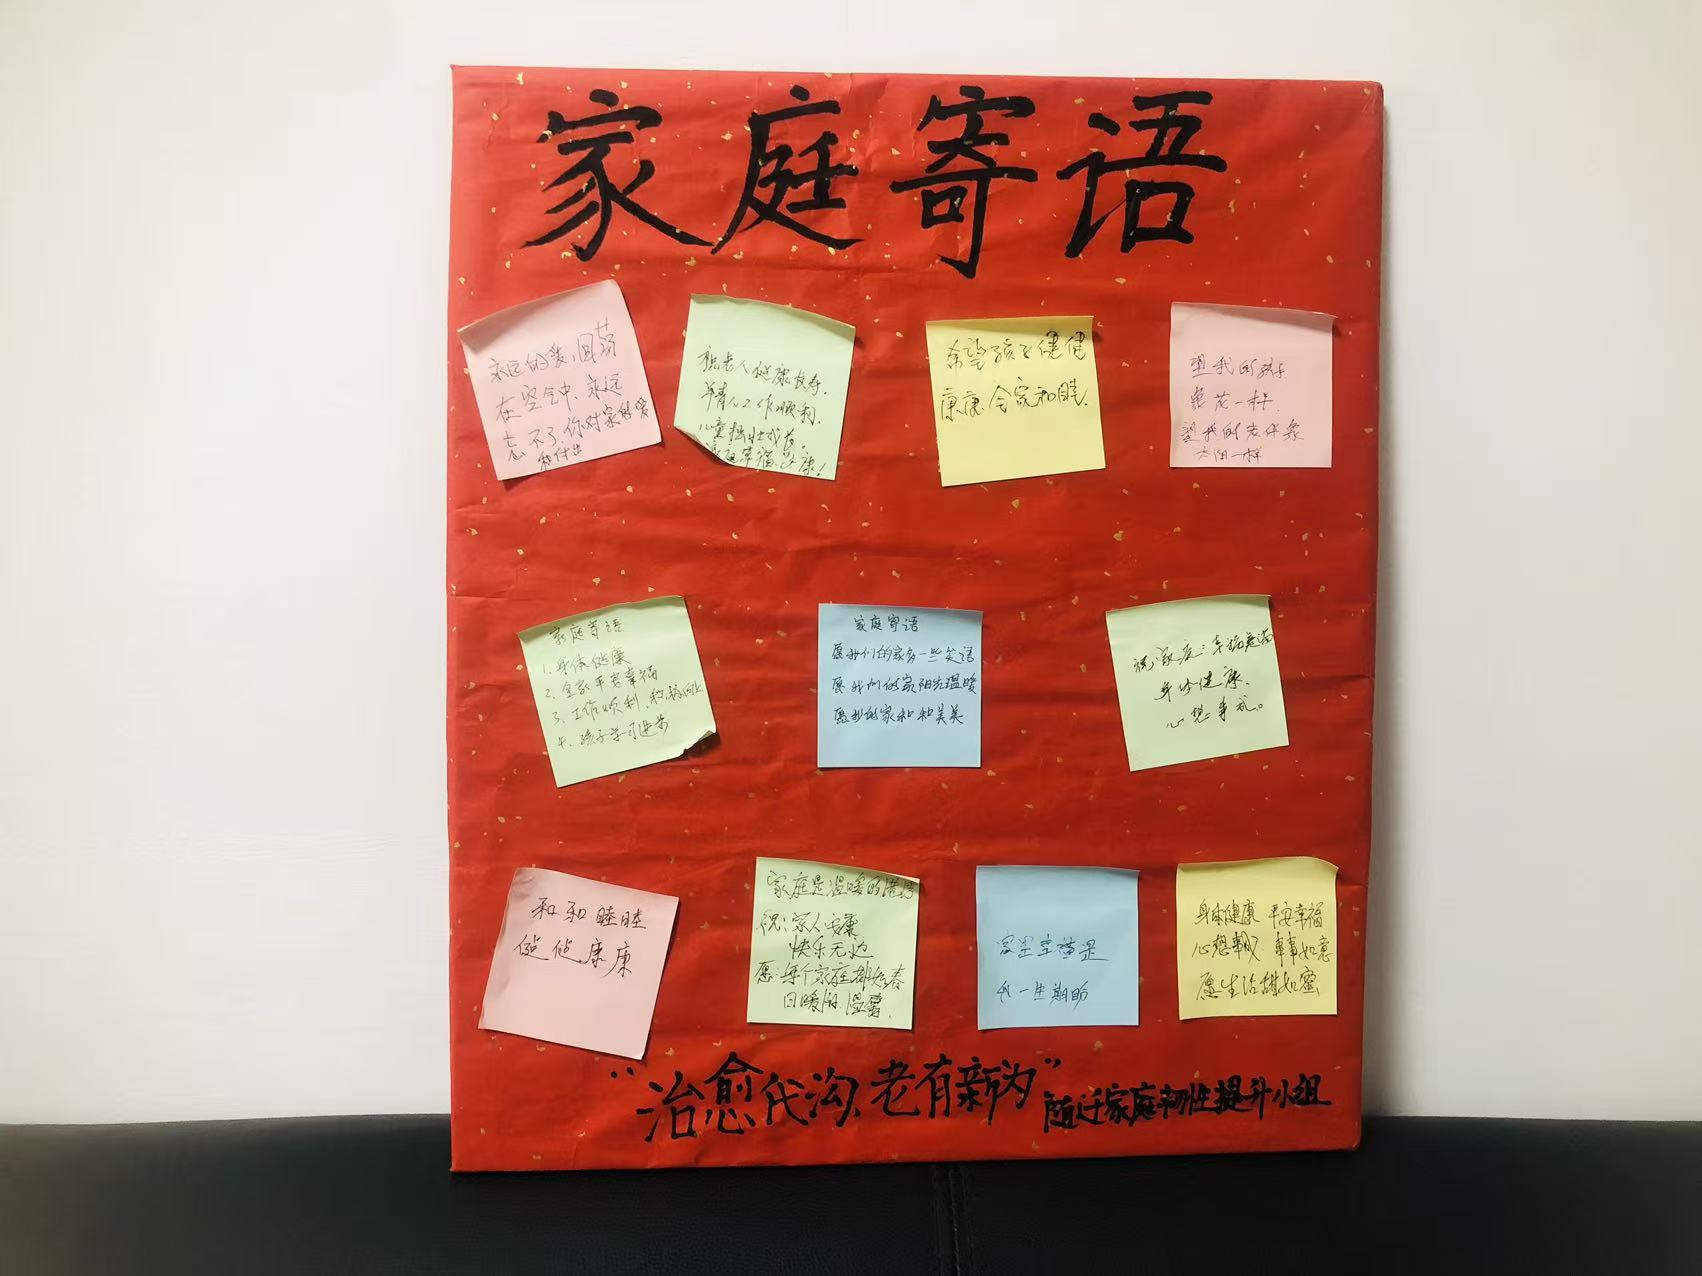 家庭寄语
永远的爱,回荡
在空气中,永远
忘不了,你对家的爱
和付出
祝老人健康长寿,
年青人工作顺利,
儿童茁壮成长。
家庭幸福安康!
希望孩子健健
康康,全家和睦,
望我的孩子
象花一样,
望我的老伴象
太阳一样
家庭寄语
1. 身体健康
2. 全家平安幸福
3、工作顺利、积极向上
4、孩子学习进步
家庭寄语
愿我们的家多一些笑语
愿我们的家阳光温暖
愿我的家和和美美
祝:家庭:幸福美满
身体健康、
心想事成。
和和睦睦
健健康康
家庭是温暖的港湾
祝:家人安康
快乐无边
愿:每个家庭都如春
日暖阳,温馨.
家里幸福是
我一生期盼
身体健康 平安幸福
心想事成 事事如意
愿生活甜如蜜
“治愈代沟,老有新为”随迁家庭韧性提升小组